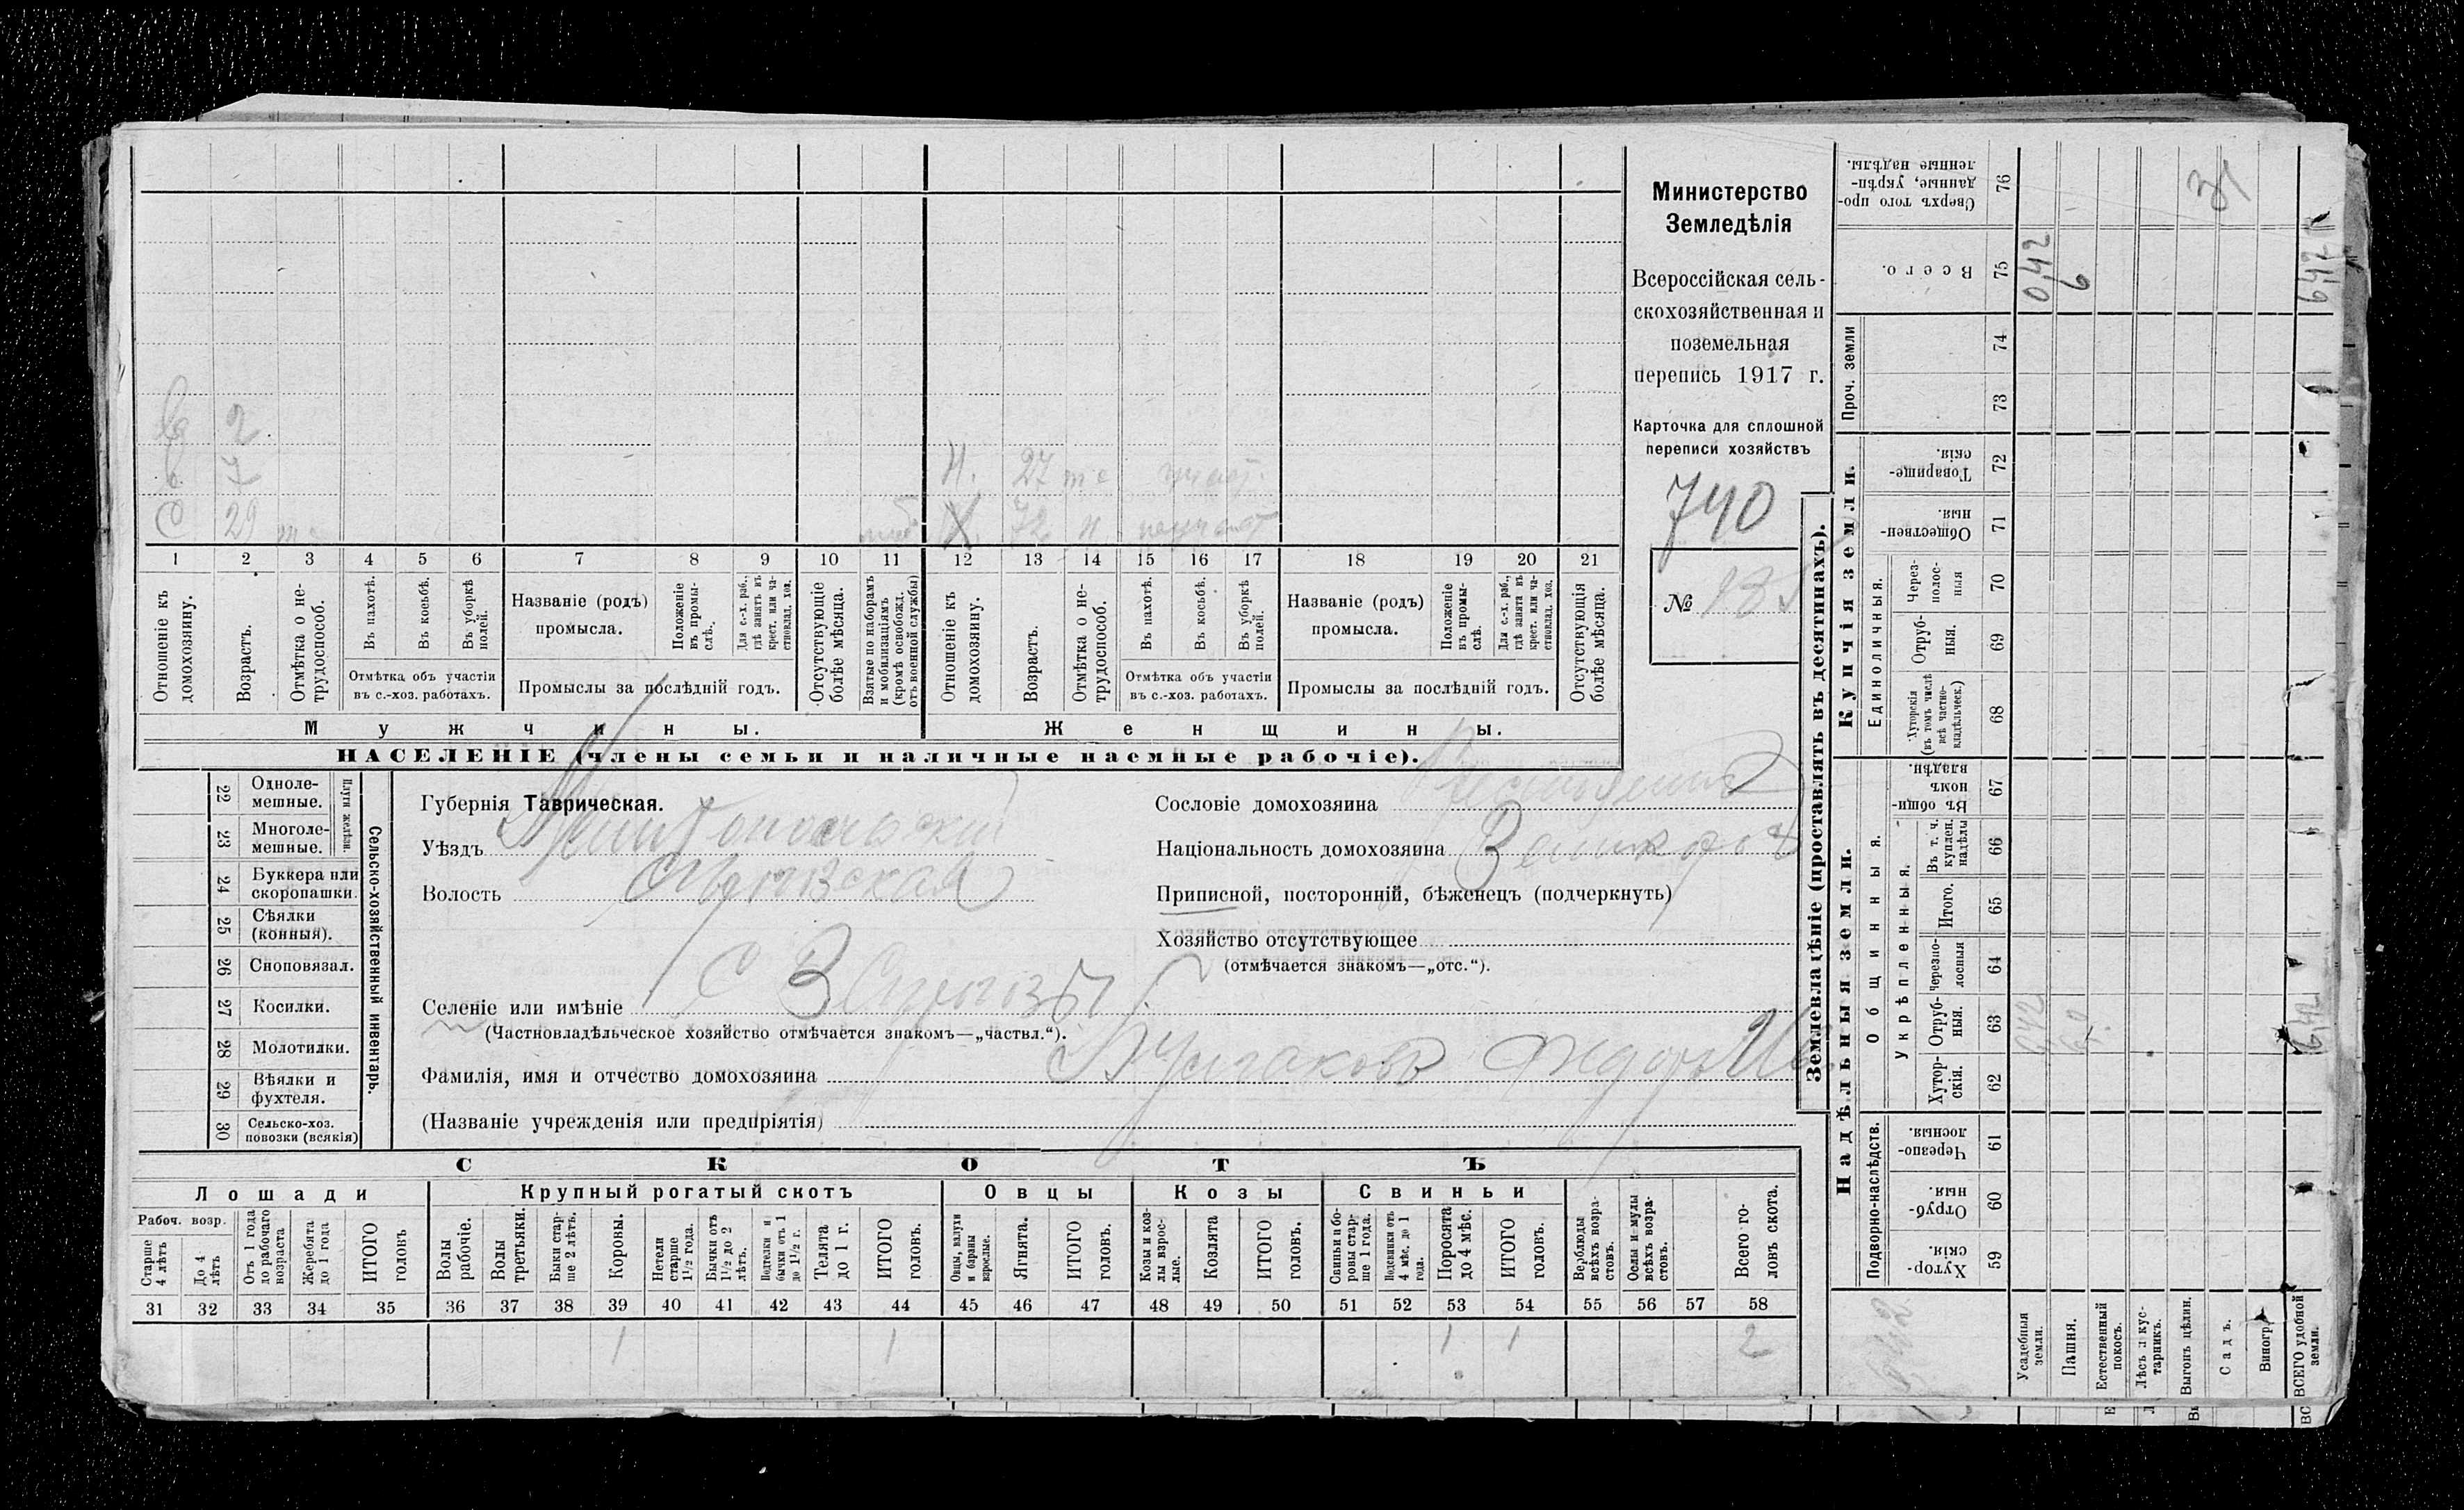 Министерство
Земледѣлія
Всероссійская сель-
скохозяйственная и
поземельная
перепись 1917 г.
Карточка для сплошной
переписи хозяйствъ
740
№
2
7
Н. 27
29 72 н
1 2 3 4 5 6 7 8 9 10 11 12 13 14 15 16 17 18 19 20 21
Отношеніе къ домохозяину.
Возрастъ.
Отмѣтка о не-трудоспособ.
Въ пахотѣ.
Въ косьбѣ.
Въ уборкѣ полей.
Отмѣтка объ участіи
въ с.-хоз. работахъ.
Названіе (родъ)
промысла.
Положеніе въ промы-слѣ.
Для с.-х. раб., гдѣ занятъ въ крест. или ча-стновлад. хоз.
Промыслы за послѣдній годъ.
Отсутствующіе болѣе мѣсяца.
Взятые по наборамъ и мобилизаціямъ (кромѣ освобожд. отъ военной службы)
Отношеніе къ домохозяину.
Возрастъ.
Отмѣтка о не-трудоспособ.
Въ пахотѣ.
Въ косьбѣ.
Въ уборкѣ полей.
Отмѣтка объ участіи
въ с.-хоз. работахъ.
Названіе (родъ)
промысла.
Положеніе въ промы-слѣ.
Для с.-х. раб., гдѣ занята въ крест. или ча-стновлад. хоз.
Промыслы за послѣдній годъ.
Отсутствующія болѣе мѣсяца.
Мужчины.
Женщины.
НАСЕЛЕНІЕ (члены семьи и наличные наемные рабочіе).
Сельско-хозяйственный инвентарь.
Плуги желѣзн.
22 Одноле-мешные.
23 Многоле-мешные.
24 Буккера или скоропашки.
25 Сѣялки (конныя).
26 Сноповязал.
27 Косилки.
28 Молотилки.
29 Вѣялки и фухтеля.
30 Сельско-хоз. повозки (всякія)
Губернія Таврическая.
Уѣздъ Мелитопольскій
Волость
Селеніе или имѣніе С В Сѣрогозы
(Частновладѣльческое хозяйство отмѣчается знакомъ—„частвл.“).
Фамилія, имя и отчество домохозяина Булгаковъ Федоръ
(Названіе учрежденія или предпріятія)
Сословіе домохозяина
Національность домохозяина Великоросъ
Приписной, посторонній, бѣженецъ (подчеркнуть)
Хозяйство отсутствующее
(отмѣчается знакомъ—„отс.“).
СКОТЪ
Лошади
Крупный рогатый скотъ
Овцы
Козы
Свиньи
Рабоч. возр.
Старше 4 лѣтъ
До 4 лѣтъ
Отъ 1 года до рабочаго возраста
Жеребята до 1 года
ИТОГО головъ
Волы рабочіе.
Волы третьяки.
Быки стар-ше 2 лѣтъ.
Коровы.
Нетели старше 1½ года.
Бычки отъ 1½ до 2 лѣтъ.
Подтелки и бычки отъ 1 до 1½ г.
Телята до 1 г.
ИТОГО головъ.
Овцы, валухи и бараны взрослые.
Ягнята.
ИТОГО головъ.
Козы и коз-лы взрос-лые.
Козлята
ИТОГО головъ.
Свиньи и бо-ровы стар-ше 1 года.
Подсвинки отъ 4 мѣс. до 1 года.
Поросята до 4 мѣс.
ИТОГО головъ.
Верблюды всѣхъ возра-стовъ.
Ослы и мулы всѣхъ возра-стовъ.
Всего го-ловъ скота.
31 32 33 34 35 36 37 38 39 40 41 42 43 44 45 46 47 48 49 50 51 52 53 54 55 56 57 58
1 1 1 1 2
Землевладѣніе (проставлять въ десятинахъ).
Надѣльныя земли.
Купчія земли.
Проч. земли
Подворно-наслѣдств.
Общинныя.
Укрѣпленныя.
Единоличныя.
59 Хутор-скія.
60 Отруб-ныя.
61 Черезпо-лосныя.
62 Хутор-скія.
63 Отруб-ныя.
64 Черезпо-лосныя
65 Итого.
66 Въ т. ч. куплен. надѣлы
67 Въ общин-номъ владѣн.
68 Хуторскія (въ томъ числѣ всѣ частно-владѣльческ.)
69 Отруб-ныя.
70 Через-полос-ныя
71 Обществен-ныя.
72 Товарище-скія.
73
74
75 Всего.
76 Сверхъ того про-данные, укрѣп-ленные надѣлы.
Усадебныя земли.
Пашня.
Естественный покосъ.
Лѣсъ и кус-тарникъ.
Выгонъ цѣлин.
Садъ.
Виногр.
ВСЕГО удобной земли.
0,42
6
6,42
6,42